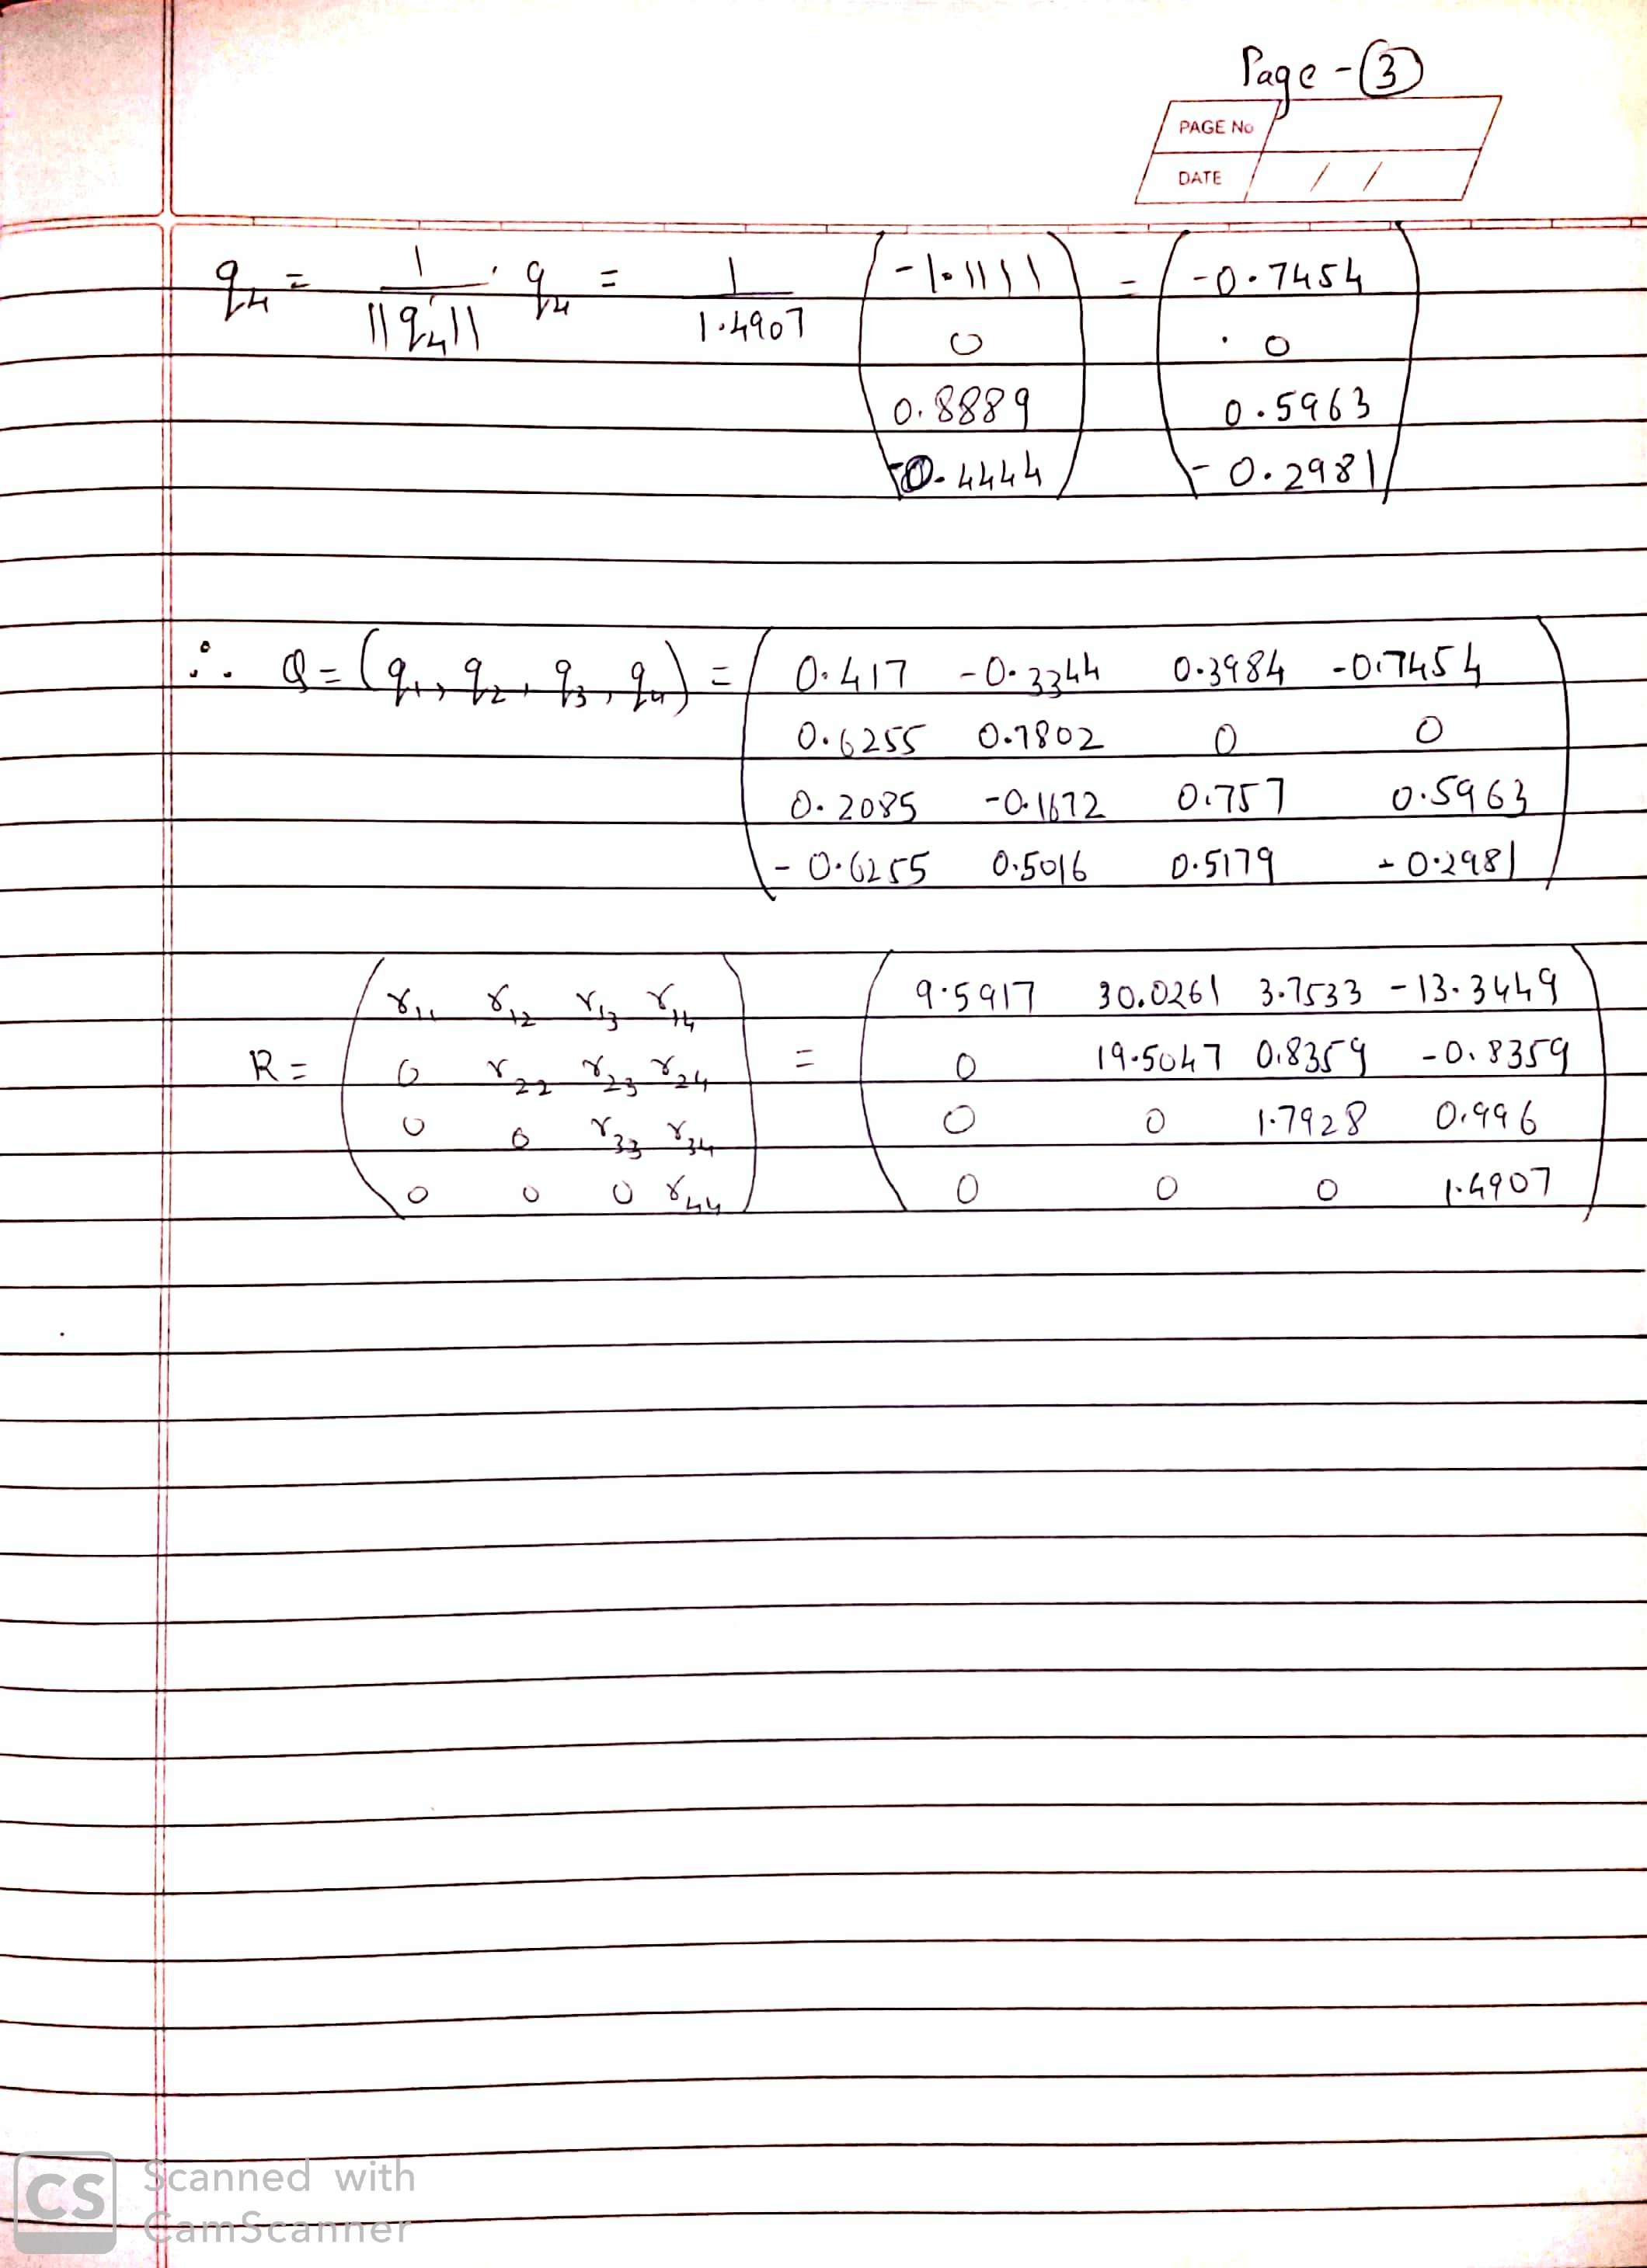 Page - ③
PAGE No
DATE / /
q₄ = 1/||q₄'|| · q₄' = 1/1.4907 ( -1.1111 ; 0 ; 0.8889 ; -0.4444 ) = ( -0.7454 ; 0 ; 0.5963 ; -0.2981 )
∴ Q = (q₁, q₂, q₃, q₄) = ( 0.417 -0.3344 0.3984 -0.7454
0.6255 0.7802 0 0
0.2085 -0.1672 0.757 0.5963
-0.6255 0.5016 0.5179 -0.2981 )
R = ( r₁₁ r₁₂ r₁₃ r₁₄ ; 0 r₂₂ r₂₃ r₂₄ ; 0 0 r₃₃ r₃₄ ; 0 0 0 r₄₄ ) = ( 9.5917 30.0261 3.7533 -13.3449
0 19.5047 0.8359 -0.8359
0 0 1.7928 0.996
0 0 0 1.4907 )
CS Scanned with
CamScanner